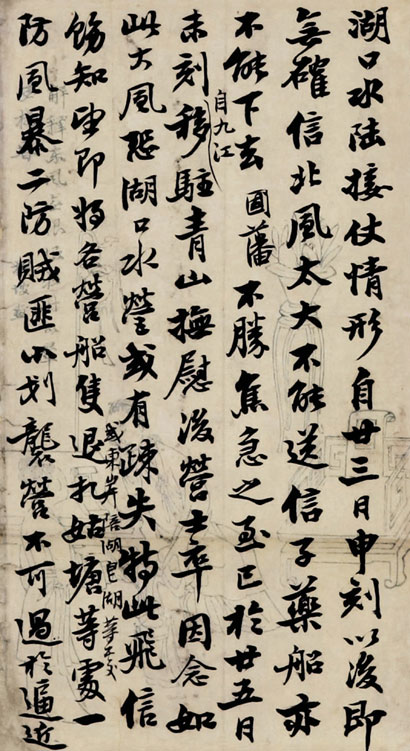 湖口水陸接仗情形自廿三日申刻以後即
無確信北風太大不能送信子藥船亦
不能下去國藩不勝焦急之至已於廿五日
自九江
未刻移駐青山撫慰後營士卒因念如
此大風恐湖口水營或有疎失特此飛信
或東岸湖皂湖等
飭知望即將各營船隻退扎姑塘等處一
防風暴二防賊匪小划襲營不可過於逼近